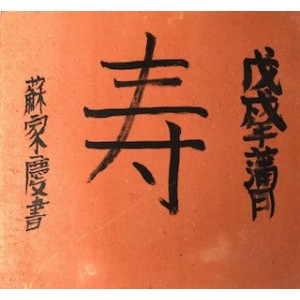 戊戌年蒲月
寿
蘇家慶書